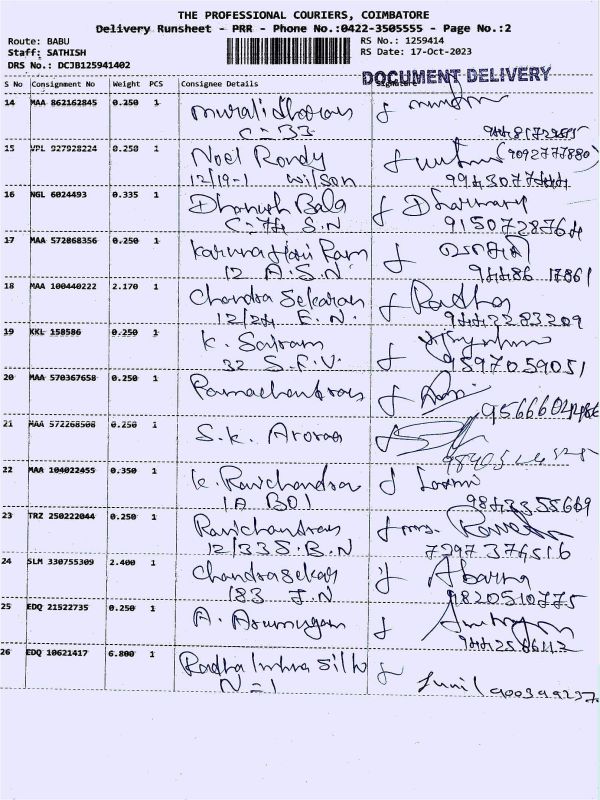 THE PROFESSIONAL COURIERS, COIMBATORE
Delivery Runsheet - PRR - Phone No.:0422-3505555 - Page No.:2
Route: BABU
RS No.: 1259414
Staff: SATHISH
RS Date: 17-Oct-2023
DRS No.: DCJB125941402
DOCUMENT DELIVERY
S No Consignment No Weight PCS Consignee Details Signature
14 MAA 862162845 0.250 1 Muralidharan
C-33
15 VPL 927928224 0.250 1 Noel Rondy (9092777880)
12/19-1 Wilson
16 NGL 6024493 0.335 1 Dhanush Bala
C-74 S.N 9150728764
17 MAA 572868356 0.250 1 Karuna Hari Ram
12 A.S.N 94486 17861
18 MAA 100440222 2.170 1 Chandra Sekaran Radha
12/24 E.N. 9442283209
19 KKL 158586 0.250 1 K. Sairam
32 S.F.V. 9597059051
20 MAA 570367658 0.250 1 Ramachandran
21 MAA 572268508 0.250 1 S.K. Arora
22 MAA 104022455 0.350 1 K. Ravichandran Laxmi
1A B01 9843355669
23 TRZ 250222044 0.250 1 Ravichandran mrs.
12/33 S.B.N 7297374516
24 SLM 330755309 2.400 1 Chandrasekar Abarna
183 J.N 9820510775
25 EDQ 21522735 0.250 1 A. Arumugam
9442566117
26 EDQ 10621417 6.800 1 Radha Silk
N-1 Sunil